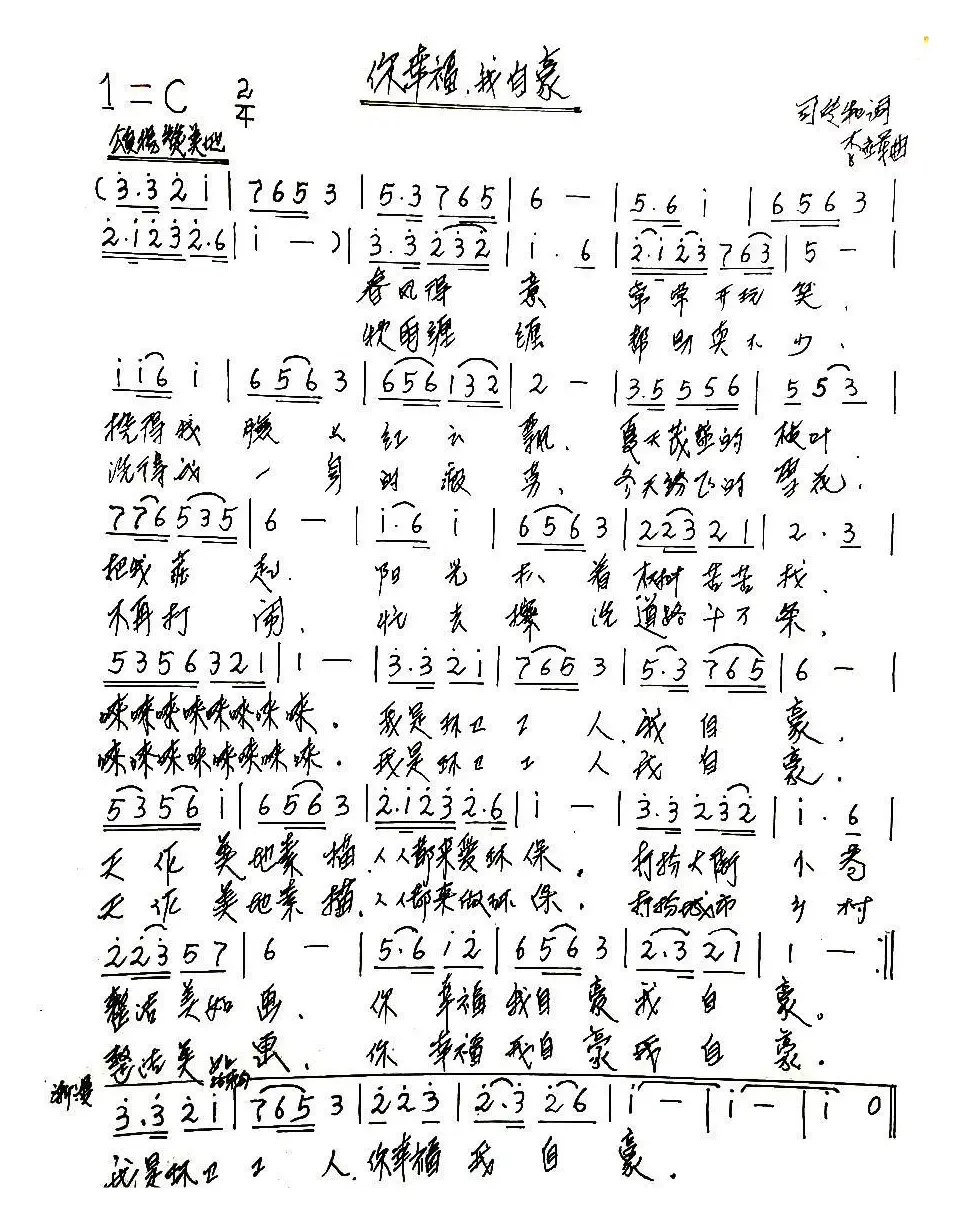 你幸福,我自豪
1=C 2/4
司 词
颂扬赞美地
曲
(3.3 2 1 | 7 6 5 3 | 5.3 7 6 5 | 6 — | 5.6 1 | 6 5 6 3 |
2.1 2 3 2.6 | 1 — ) | 3.3 2 3 2 | 1 . 6 | 2.1 2 3 7 6 3 | 5 — |
春风得 意 常常开玩 笑,
秋雨缠 缠 帮助真不少,
1 1 6 1 | 6 5 6 3 | 6 5 6 1 3 2 | 2 — | 3.5 5 5 6 | 5 5 3 |
挽得我 脸上红云 飘, 夏天茂盛的 枝叶
洗得我 一身的 , 冬天纷飞的 雪花,
7 7 6 5 3 5 | 6 — | 1.6 1 | 6 5 6 3 | 2 2 3 2 1 | 2 . 3 |
把我 起, 阳光 着 苦苦找,
不再打 闹, 忙去擦洗道路千万条,
5 3 5 6 3 2 1 | 1 — | 3.3 2 1 | 7 6 5 3 | 5.3 7 6 5 | 6 — |
唻唻唻唻唻唻唻唻, 我是环卫工 人,我自 豪,
唻唻唻唻唻唻唻唻, 我是环卫工 人我自 豪,
5 3 5 6 1 | 6 5 6 3 | 2.1 2 3 2.6 | 1 — | 3.3 2 3 2 | 1 . 6 |
天作美地素描,人人都来爱环保, 打扮大街 小巷
天作美地素描,人人都来做环保, 打扮城市 乡村
2 2 3 5 7 | 6 — | 5.6 1 2 | 6 5 6 3 | 2.3 2 1 | 1 — :||
整洁美如画, 你幸福我自豪我自豪。
整洁美 画, 你幸福我自豪我自豪。
渐慢 3.3 2 1 | 7 6 5 3 | 2 2 3 | 2.3 2 6 | 1 — | 1 — | 1 0 ||
我是环卫工 人,你幸福我自豪。